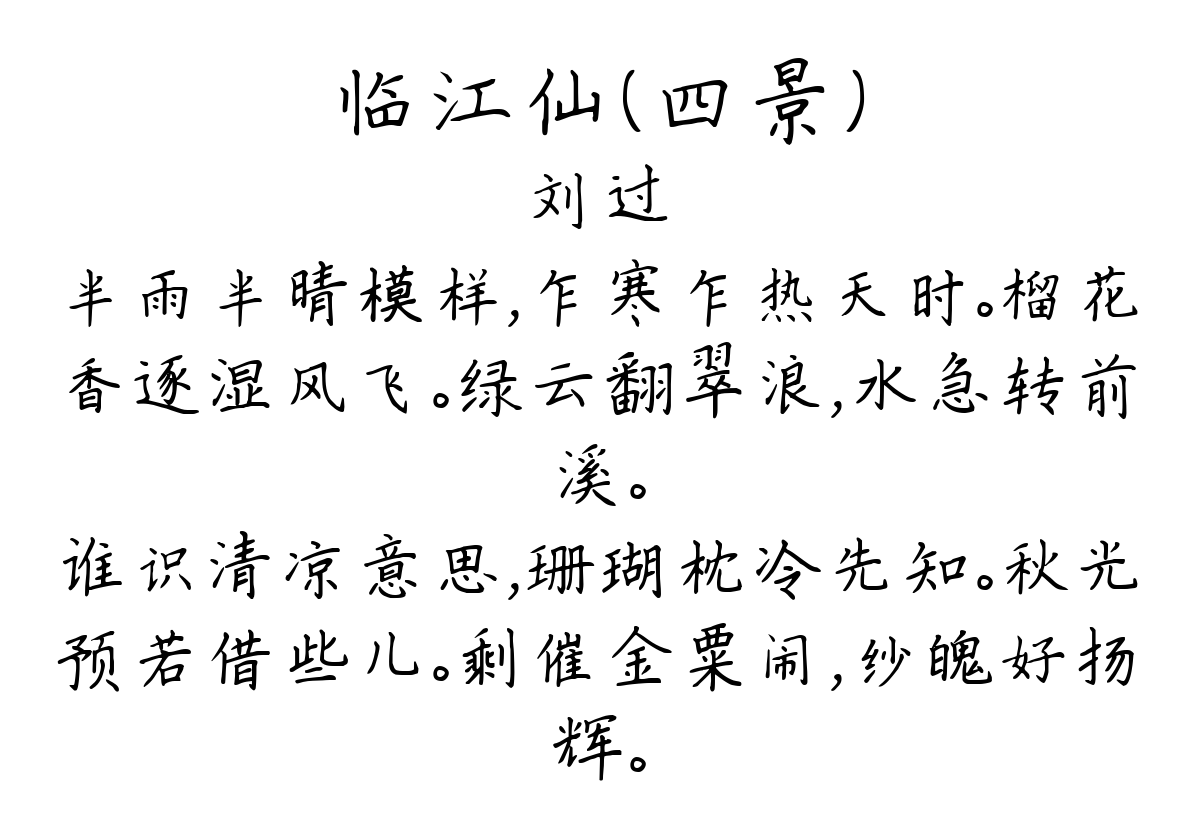 临江仙(四景)
刘过
半雨半晴模样,乍寒乍热天时。榴花
香逐湿风飞。绿云翻翠浪,水急转前
溪。
谁识清凉意思,珊瑚枕冷先知。秋光
预若借些儿。剩催金粟闹,纱魄好扬
辉。